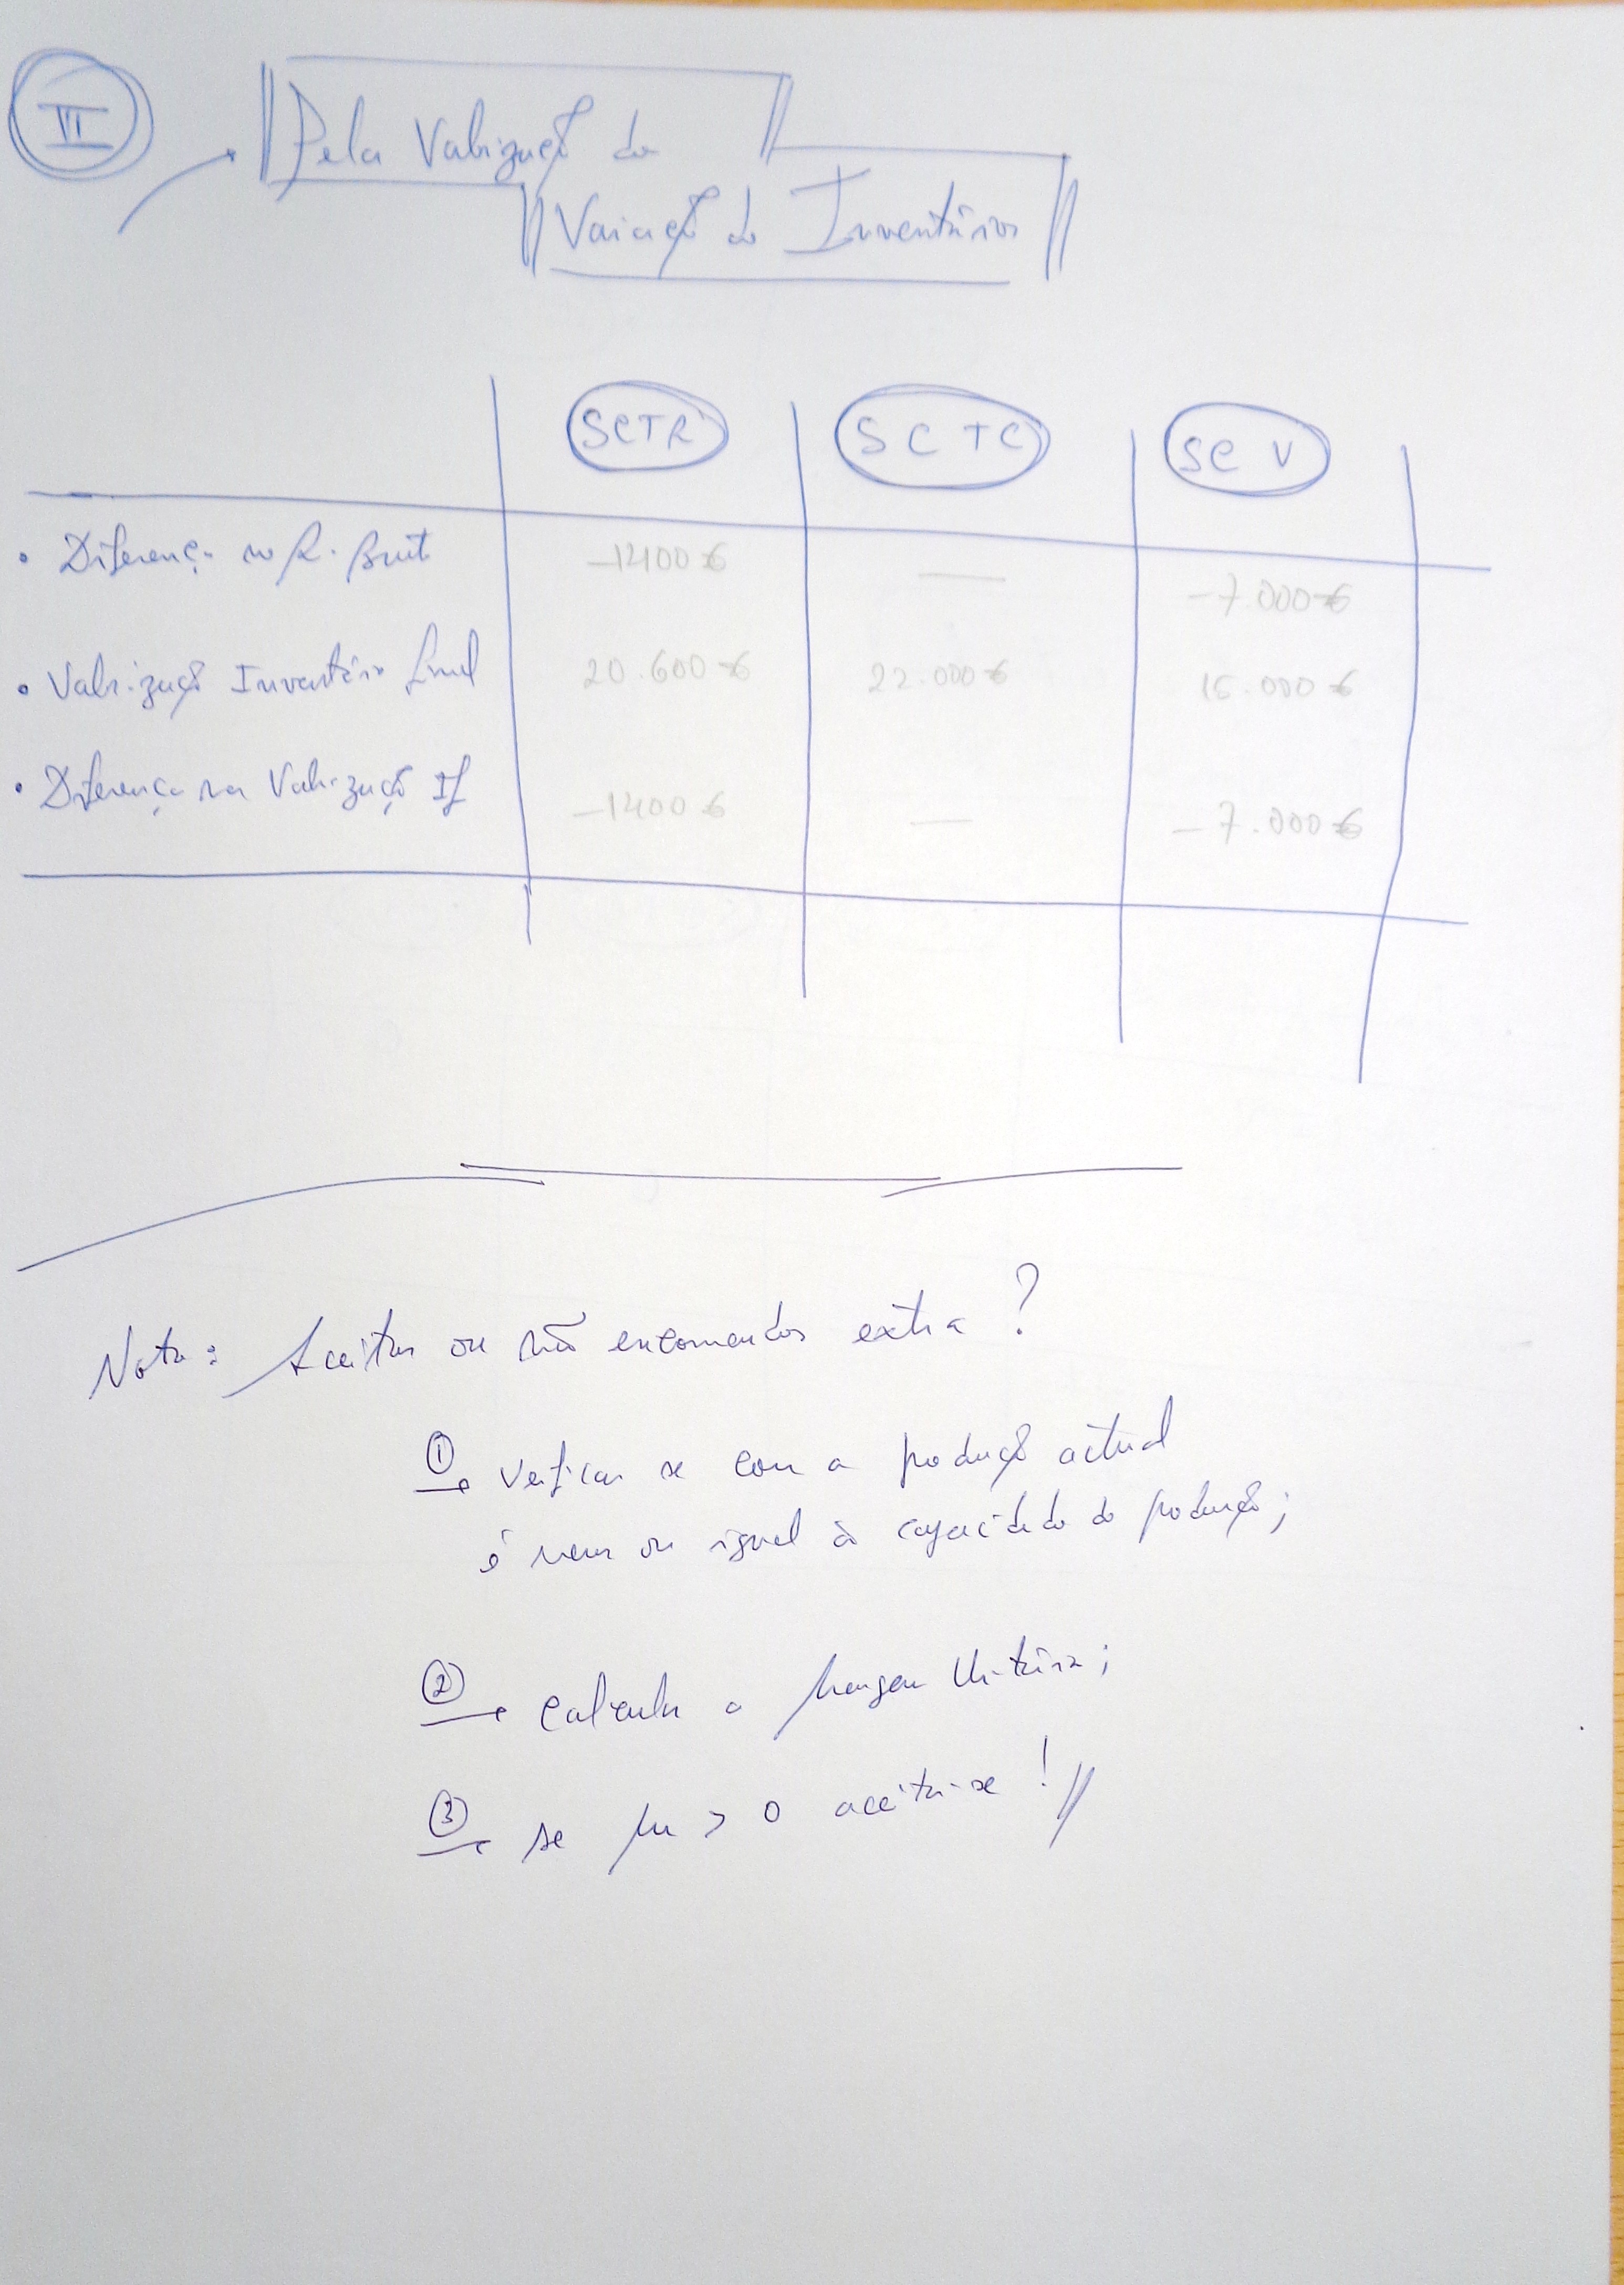 VI
Pela Valorização da
Variação de Inventários
SCTR
SCTC
SCV
• Diferença no R. Bruto
-1400€
—
-7.000€
• Valorização Inventário final
20.600€
22.000€
15.000€
• Diferença na Valorização If
-1400€
—
-7.000€
Nota: Aceitar ou não encomendas extra?
① verificar se com a produção actual
é menor ou igual à capacidade de produção;
② calcular a Margem Unitária;
③ se mu > 0 aceita-se!